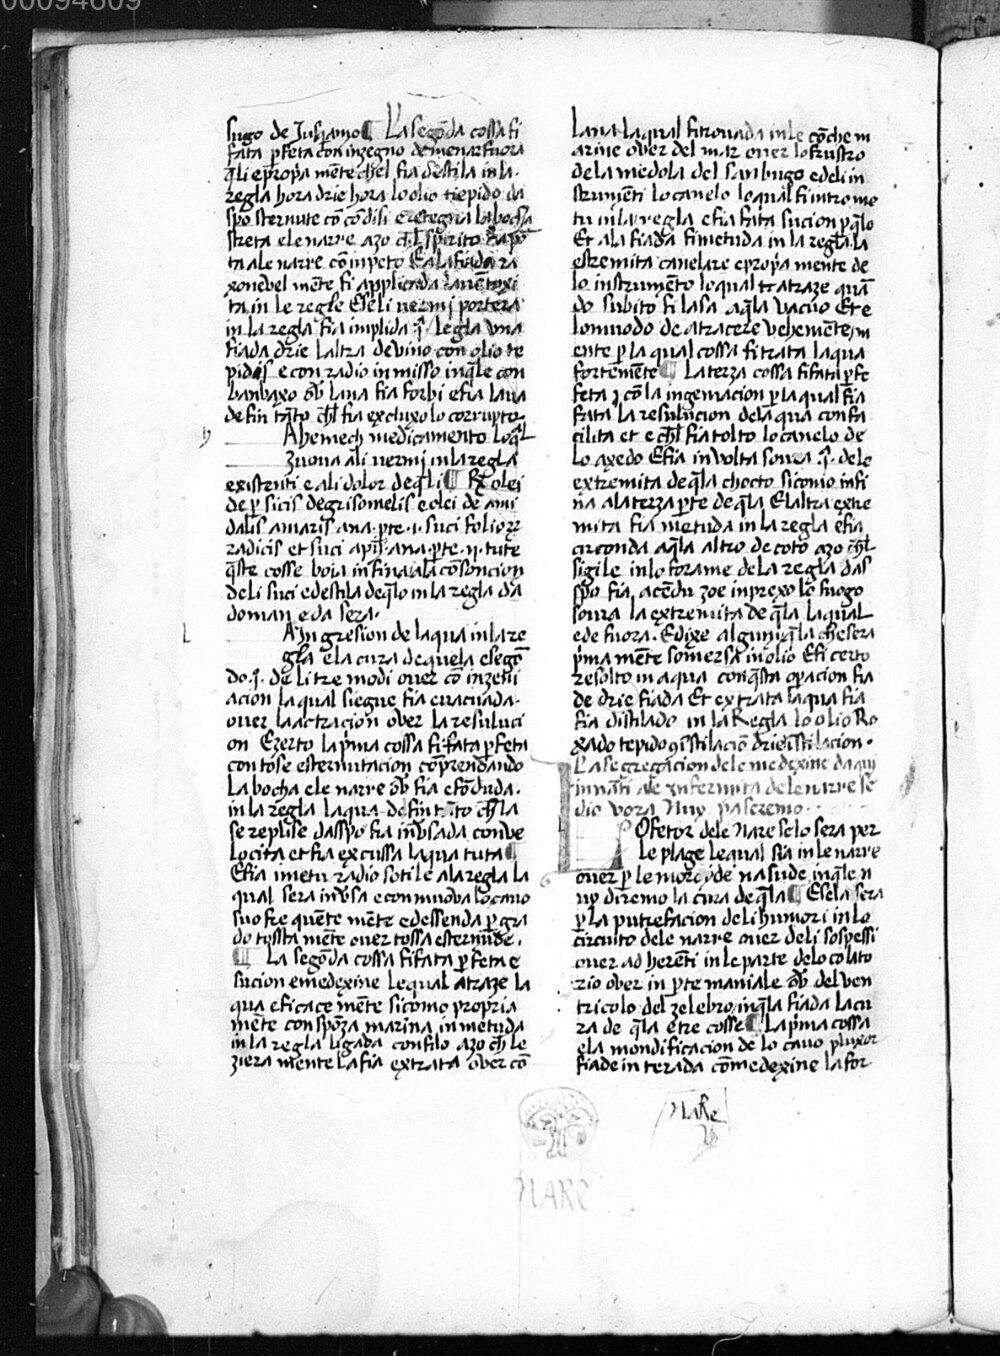 00094609
sugo de Jusqiamo ¶ La segōda cossa fi
fata ꝑfeta con inzegno de menar fuora
q̄li e propͥa mēte chel fia destila in la
regla hora drie hora lo olio tiepido da
spo sternute cō cōdisi e retegna la bocha
streta e le narre azo ch'l spirito
ta a le narre cō inpeto E ala fiada ra
xonevel mēte fi applicada la vētoxi
ta in le regle E se li vermj portera
in la regla fia implida q. le gla una
fiada drie laltra de vino con olio te
pido e con radio in misso in q̄le con
banbaxo ov̄ lana fia forbi e fia lava
defin tāto ch'l fia excluxo lo corrupto
A hemech medicamento loq̄l
zuova a li vermj in la regla
existenti e ali dolor de q̄li ¶ Rx olei
de ꝑsicis de grisomelis e olei de ami
dalis amaris ana pte .i. suci folioꝝ
radicis et suci apij ana pte .ij. tute
q̄ste cosse boia infina ala cōsoncion
de li suci e destila de q̄lo in la regla da
doman e da sera.
A Ingresion de laqua in la re
gla e la cura de quela e segō
do .q. de li tre modi over cō inzeni
acion la qual siegue fia evacuada.
over la actracion over la resuluci
on E zerto la pͥma cossa fi fata ꝑfeta
con tose e sternutacion cōprendando
la bocha e le narre ov̄ fia efōduda.
in la regla laqua defin tāto ch'la
se replise daspo fia inv̄sada con ve
locita et fia excussa laqua tuta ¶
E fia metu radio sotile ala regla la
qual sera inv̄sa e con muova lo cavo
suo frequente mēte e dessenda ꝑ gra
do tossta mēte over tossa e sternude.
¶ La segōda cossa fi fata ꝑfeta e
sucion e medexine le qual atraze la
qua eficace mēte sicomo propria
mēte con spōza marina in metuda
in la regla ligada con filo azo ch' le
ziera mente la fia extrata over cō
lana la qual fi trovada in le cōche m
arine over del mar over lo frustro
de la medola del sanbugo e de li in
strumēti lo canelo lo qual fi intro me
tu in la regla e fia fata sucion ꝑ q̄lo
Et ala fiada fi metuda in la regla la
estremita canelare e propͥa mente de
lo instrumēto lo qual tr atraze quā
do subito fi lasa aq̄la vacuo Et e
lo muodo de atracere vehemēte m
ente ꝑ la qual cossa fi trata laqua
fortemēte ¶ La terza cossa fi fata ꝑfe
feta con la ingeniacion ꝑ la qual fia
fata la resulucion dela qua con fa
cilita et e ch'l fia tolto lo canelo de
lo axedo E fia involta sovra q. de lo
extremita de q̄la chocto sicomo infi
na ala terza pte de q̄la E laltra extre
mita fia metuda in la regla e fia
circonda aq̄la altro de coto azo ch'l
sigile in lo forame de la regla das
spo fia acendu zoe inprexo lo fuogo
sovra la extremita de q̄la la qual
e de fuora. E dixe alguni q̄la che sera
pͥma mēte somersa in olio E fi certo
resolto in aqua con q̄sta opacion fia
de drie fiada Et extrata laqua fia
fia distilado in la Regla lo olio Ro
xado tepido q. istilaciō drie istilacion.
La segregacion dele medexine da qui
innāti ale infermita de le narre se
dio vora Nuy paseremo
LO fetor dele Nare se lo sera per
le plage le qual sia in le narre
over ꝑ le moroyde nasude in q̄le n
uy diremo la cura de q̄la ¶ E se la sera
ꝑ la putrefacion de li humori in lo
circuito dele narre over deli sospessi
over adherēti in le parte de lo colato
rio over in pte maniale ov̄ del ven
tricolo del zelebro in q̄la fiada la cu
ra de q̄la e tre cosse ¶ La pͥma cossa
e la mondificacion de lo cavo pluxor
fiade in terada cō medexine la for
NARE
NARE